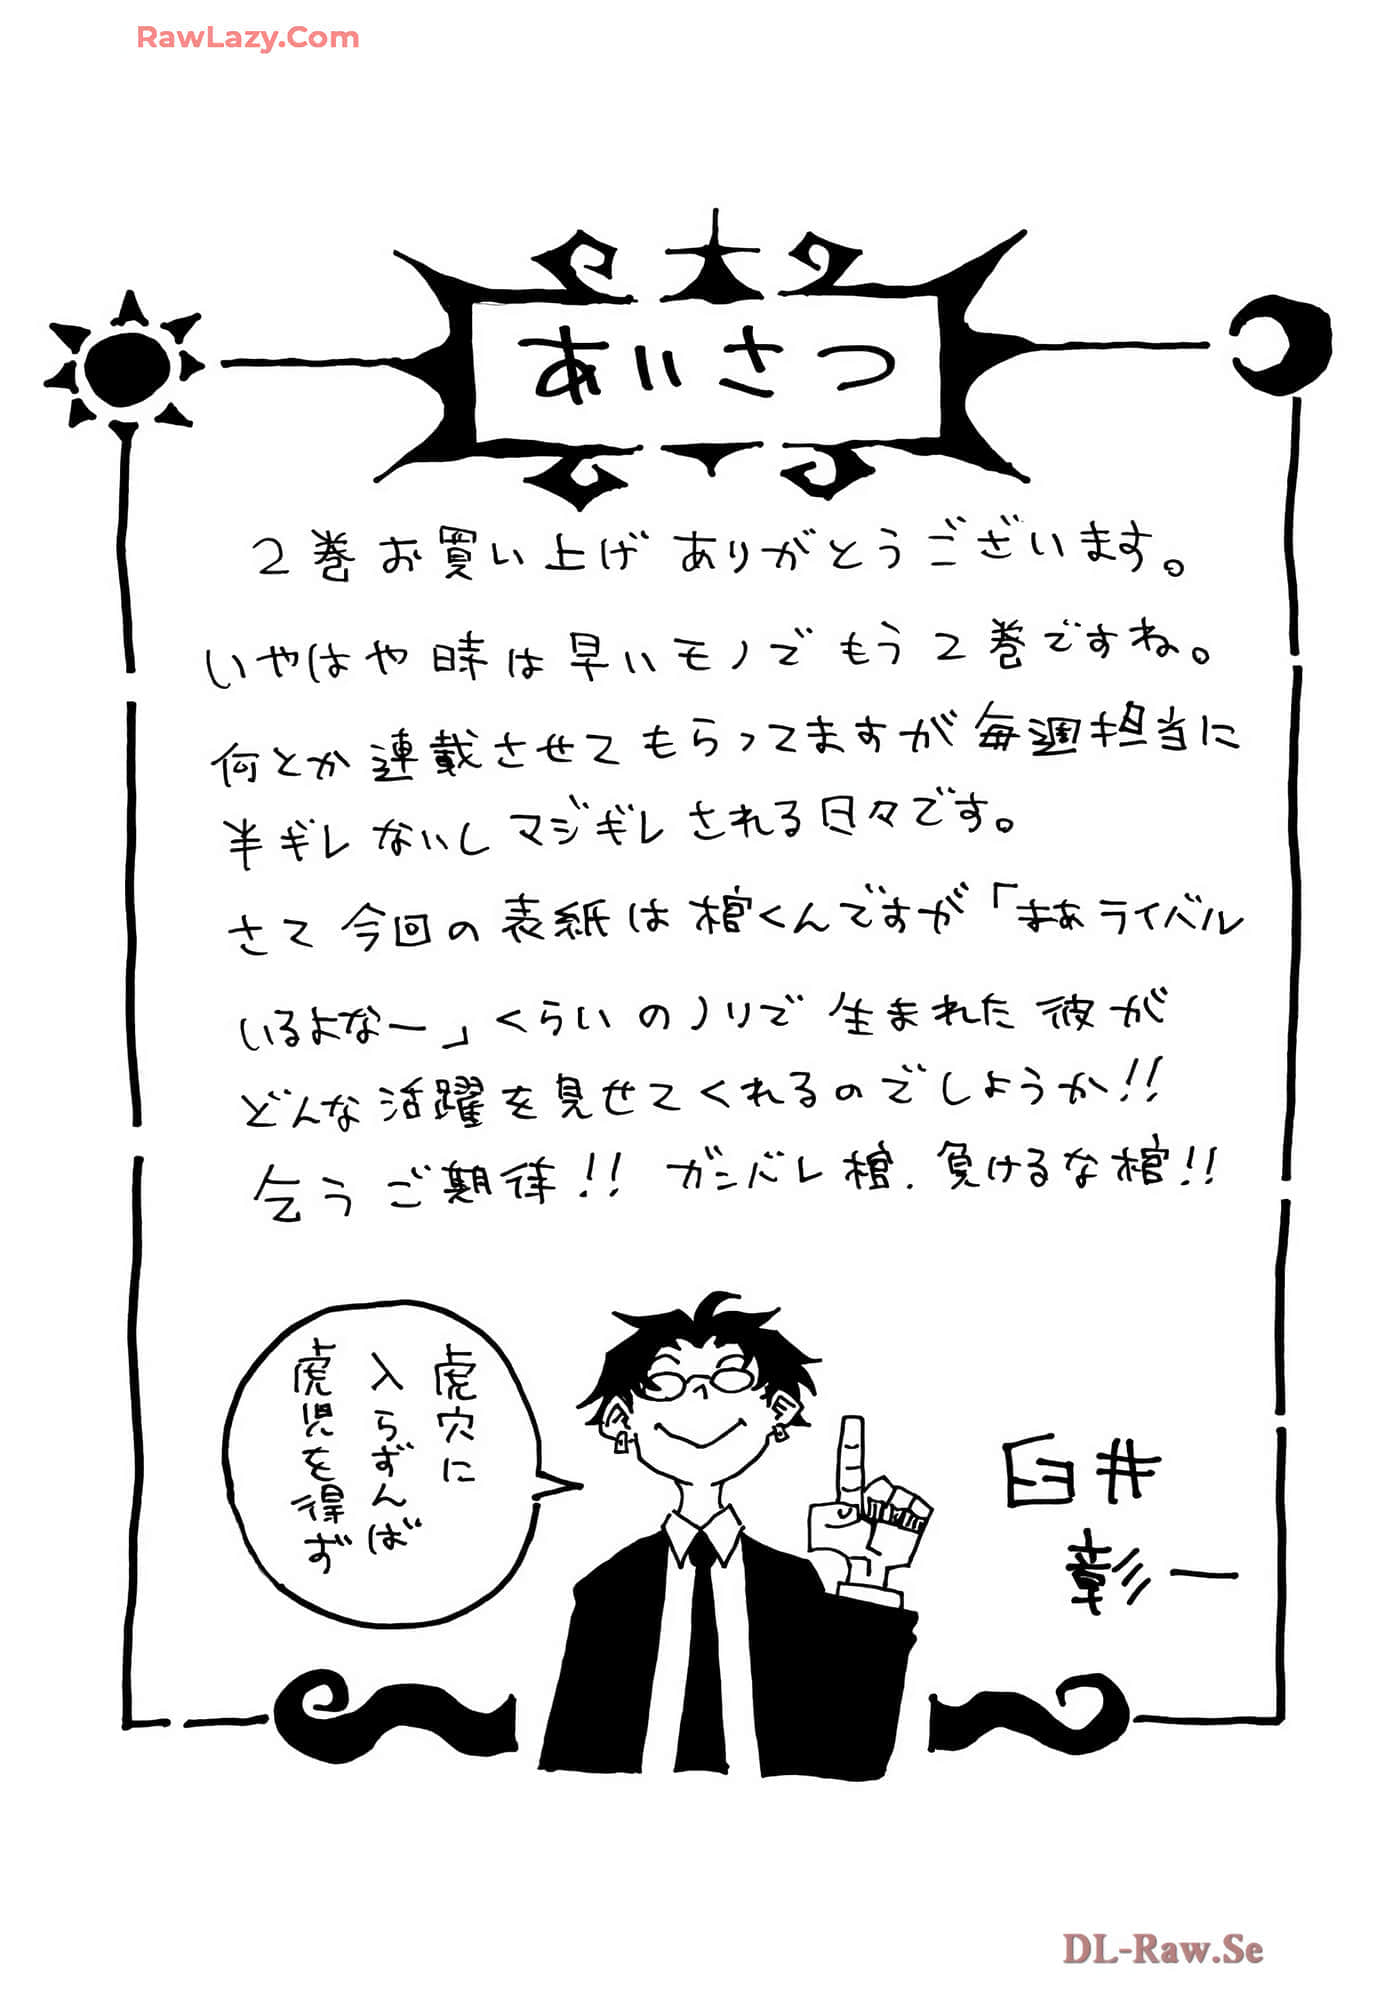 RawLazy.Com
あいさつ
2巻お買い上げありがとうございます。
いやはや時は早いモノでもう2巻ですね。
何とか連載させてもらってますが毎週担当に
半ギレないしマジギレされる日々です。
さて今回の表紙は棺くんですが「まぁライバル
いるよなー」くらいのノリで生まれた彼が
どんな活躍を見せてくれるのでしょうか!!
乞うご期待!! ガンバレ棺.負けるな棺!!
虎穴に
入らずんば
虎児を得ず
臼井
彰一
DL-Raw.Se